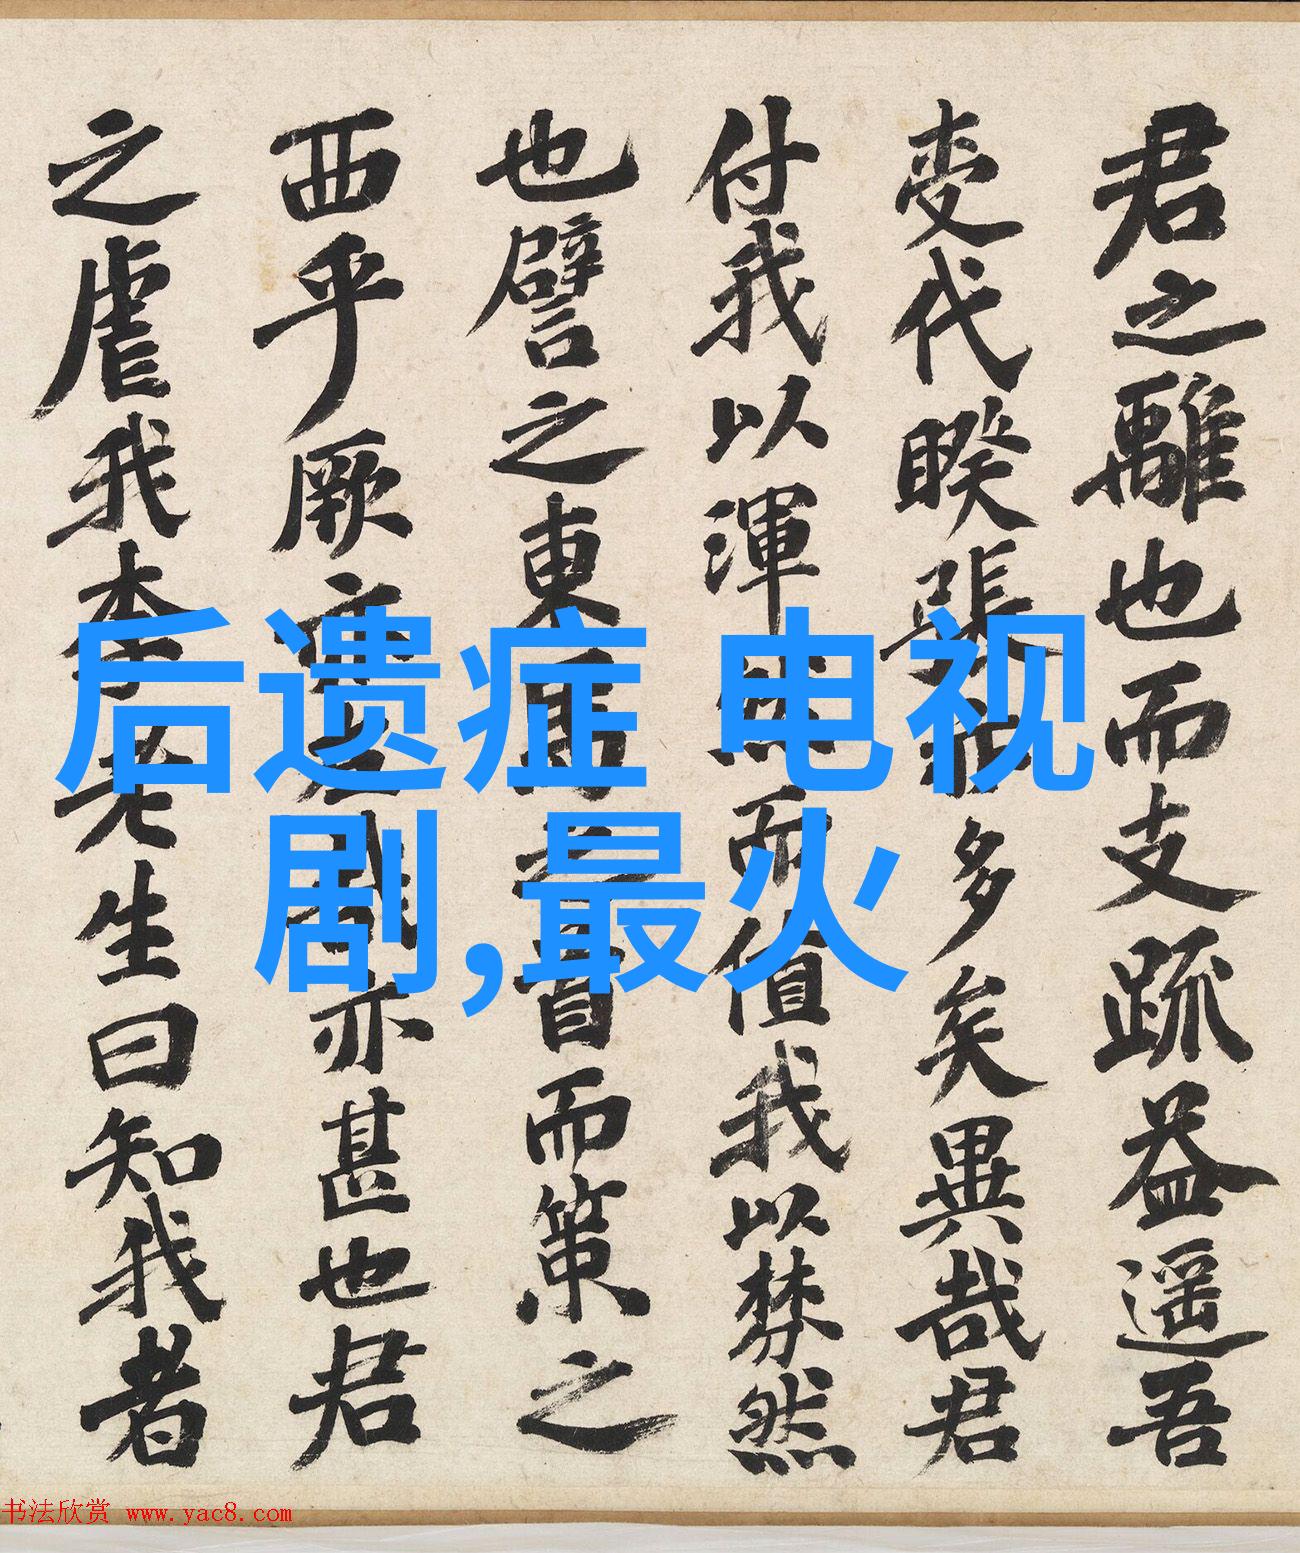 君之離也而支疏益遥吾
变代睽張於多矣異哉君
付我以渾然而值我以棼然
也譬之東馬者首而策之
西乎厥亦甚也君
之虐我李老生曰知我者
后遗症 电视
剧,最火
书法欣赏 www.yac8.com